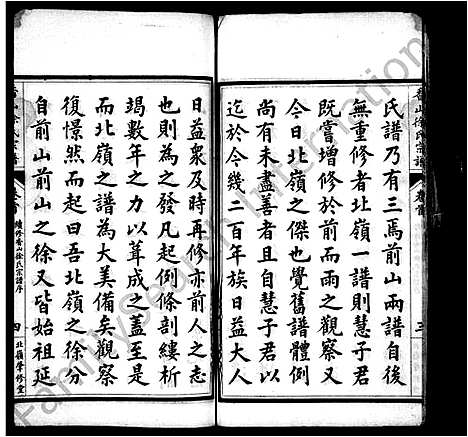 香山徐氏宗譜
卷首
三
氏譜乃有三焉前山兩譜自後
無重修者北嶺一譜則慧子君
既嘗增修於前而雨之觀察又
今日北嶺之傑也覺舊譜體例
尚有未盡善者且自慧子君以
迄於今幾二百年族日益大人
日益衆及時再修亦前人之志
也則為之發凡起例條剖縷析
竭數年之力以葺成之蓋至是
而北嶺之譜為大美備矣觀察
復憬然而起曰吾北嶺之徐分
自前山前山之徐又皆始祖延
香山徐氏宗譜
卷首
續修香山徐氏宗譜序
四
北嶺學修堂
FamilySearch International